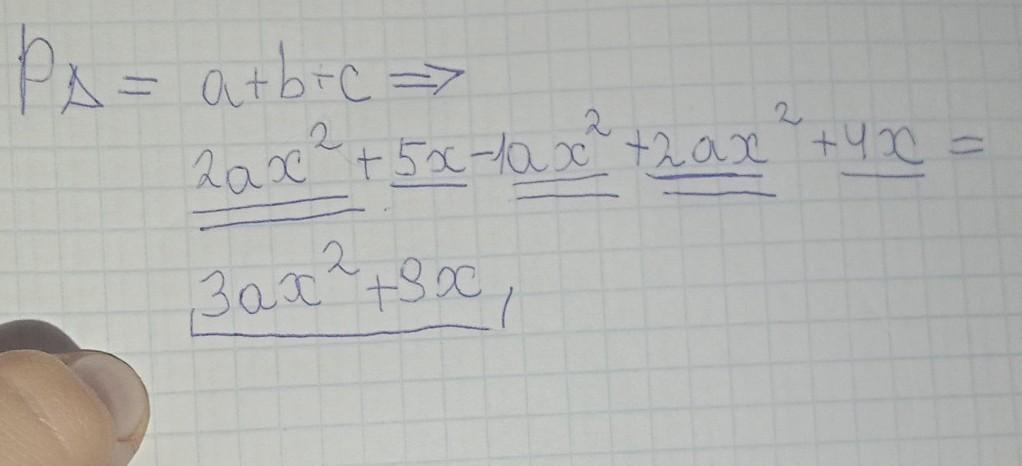 P△ = a+b+c ⇒
2ax² + 5x - 1ax² + 2ax² + 4x =
3ax² + 9x,